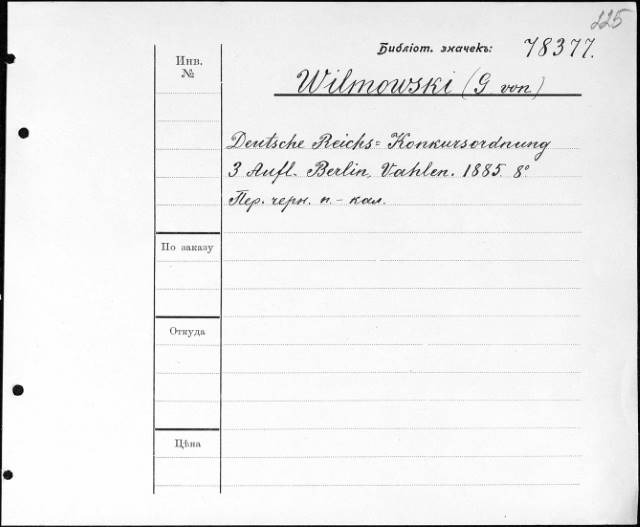 225
Библіот. значекъ: 78377.
Инв. №
Wilmowski (G von)
Deutsche Reichs= Konkursordnung
3 Aufl. Berlin, Vahlen. 1885. 8°
Пер. черн. п. - кал.
По заказу
Откуда
Цѣна